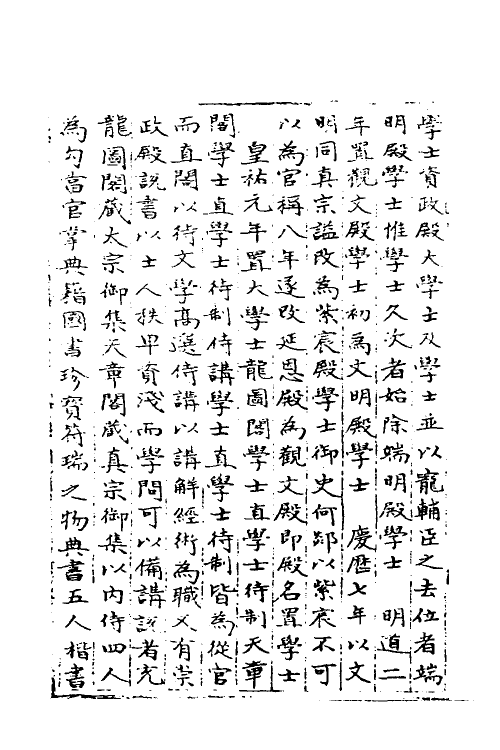 學士資政殿大學士及學士並以寵輔臣之去位者端
明殿學士惟學士久次者始除端明殿學士 明道二
年置觀文殿學士初為文明殿學士 慶曆七年以文
明同真宗謚改為紫宸殿學士御史何郯以紫宸不可
以為官稱八年遂改延恩殿為觀文殿即殿名置學士
皇祐元年置大學士龍圖閣學士直學士待制天章
閣學士直學士待制侍講學士直學士待制皆為從官
而直閣以待文學高選侍講以講解經術為職又有崇
政殿說書以士人秩卑資淺而學問可以備講說者充
龍圖閣藏太宗御集天章閣藏真宗御集以內侍四人
為勾當官掌典籍圖書珍寶符瑞之物典書五人楷書